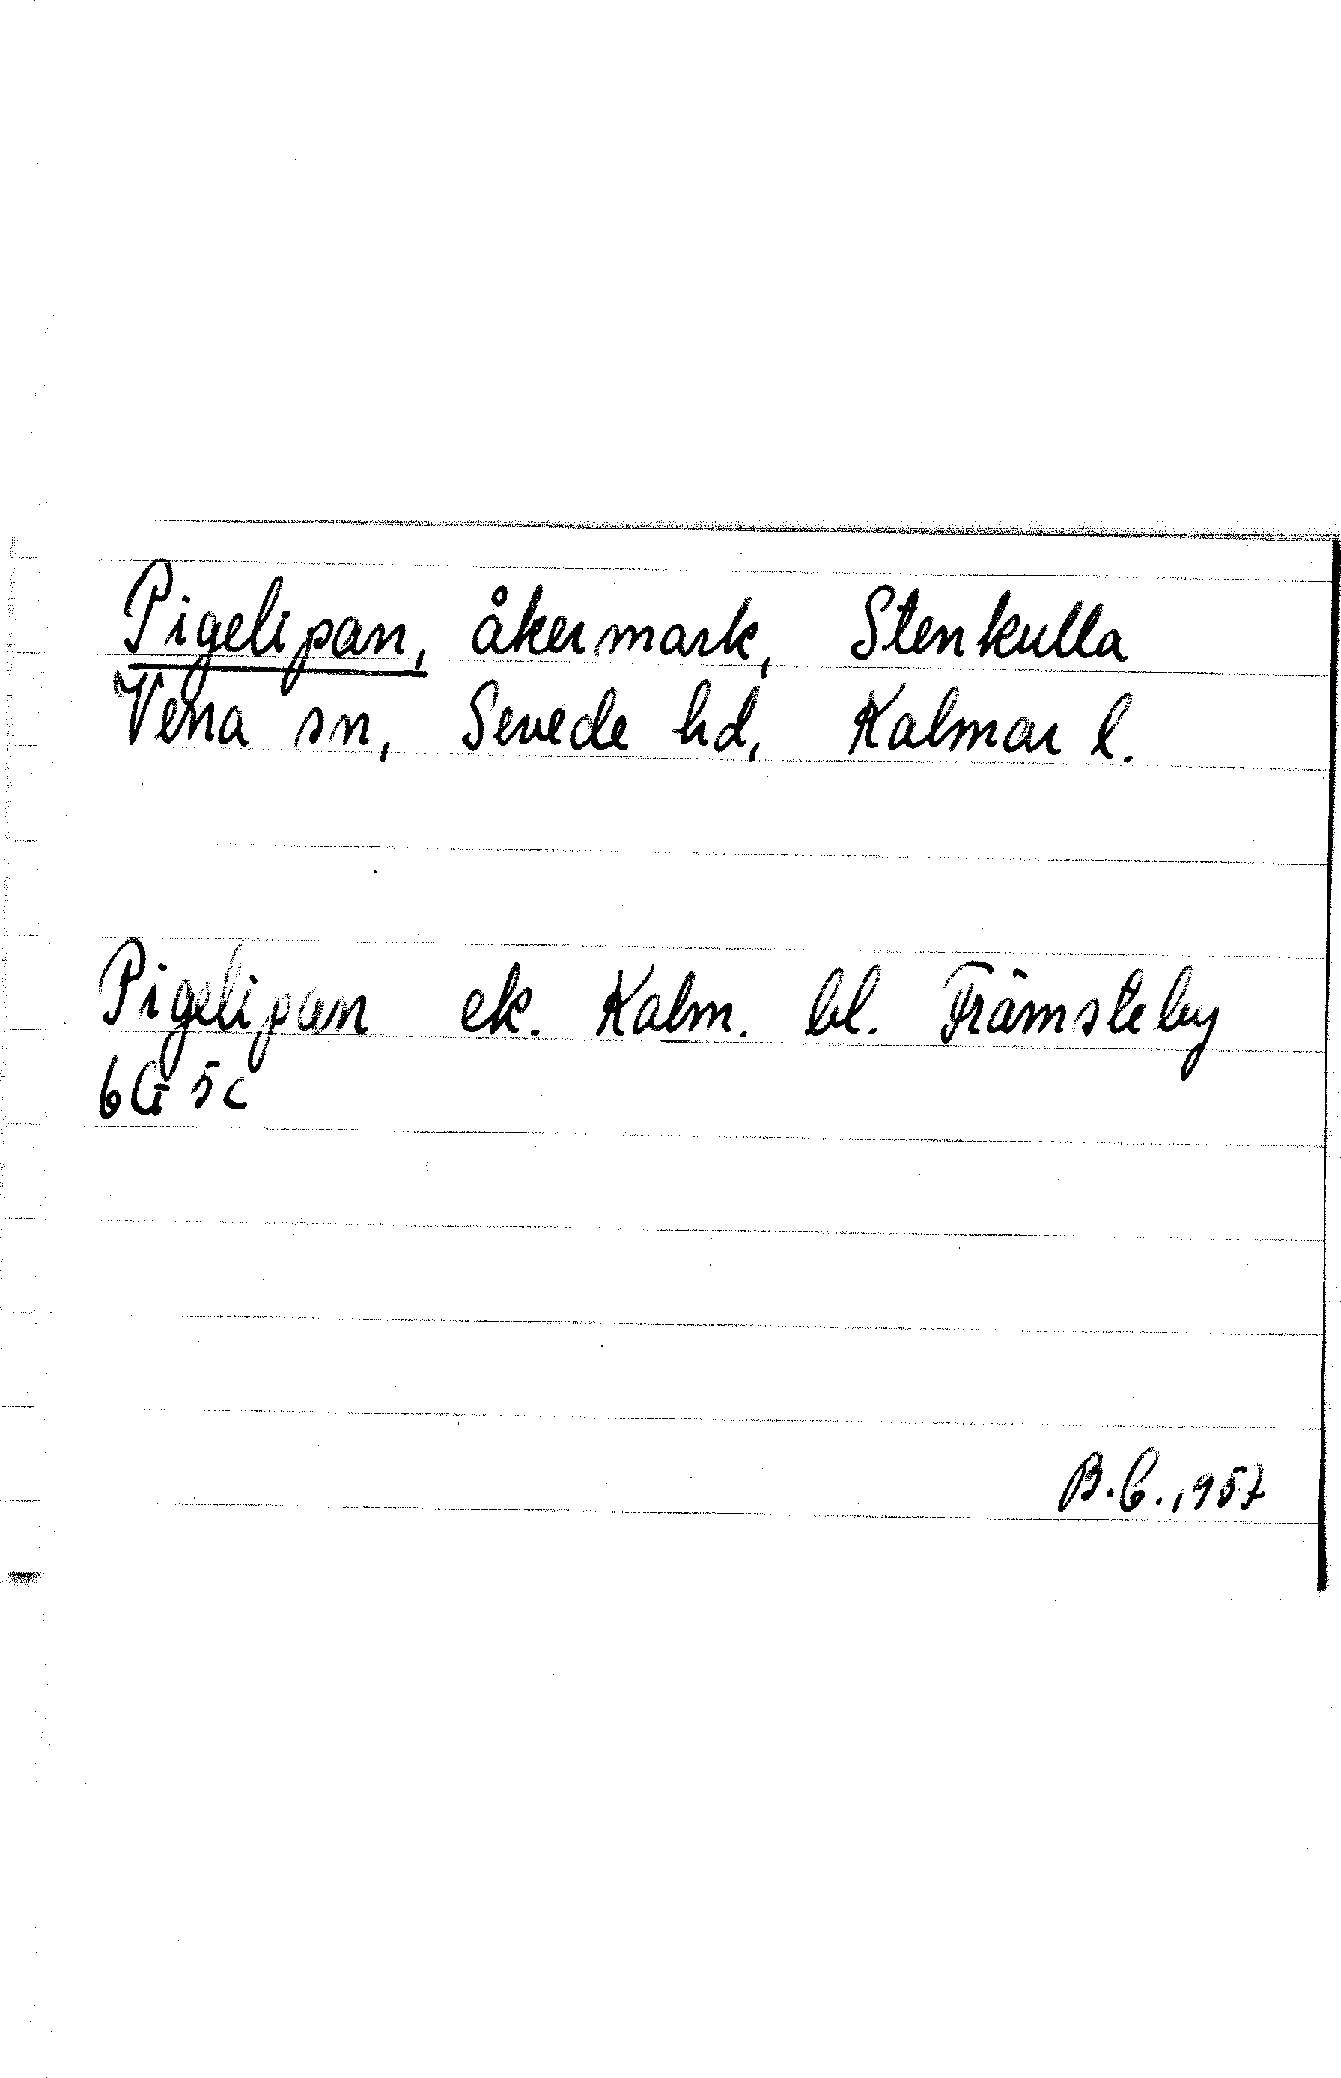 Pigelipan, åkermark, Stenkulla
Vena sn, Sevede hd, Kalmar l.
Pigelipan ek. Kalm. bl. Främsteby
6G 5c
B.C., 1957